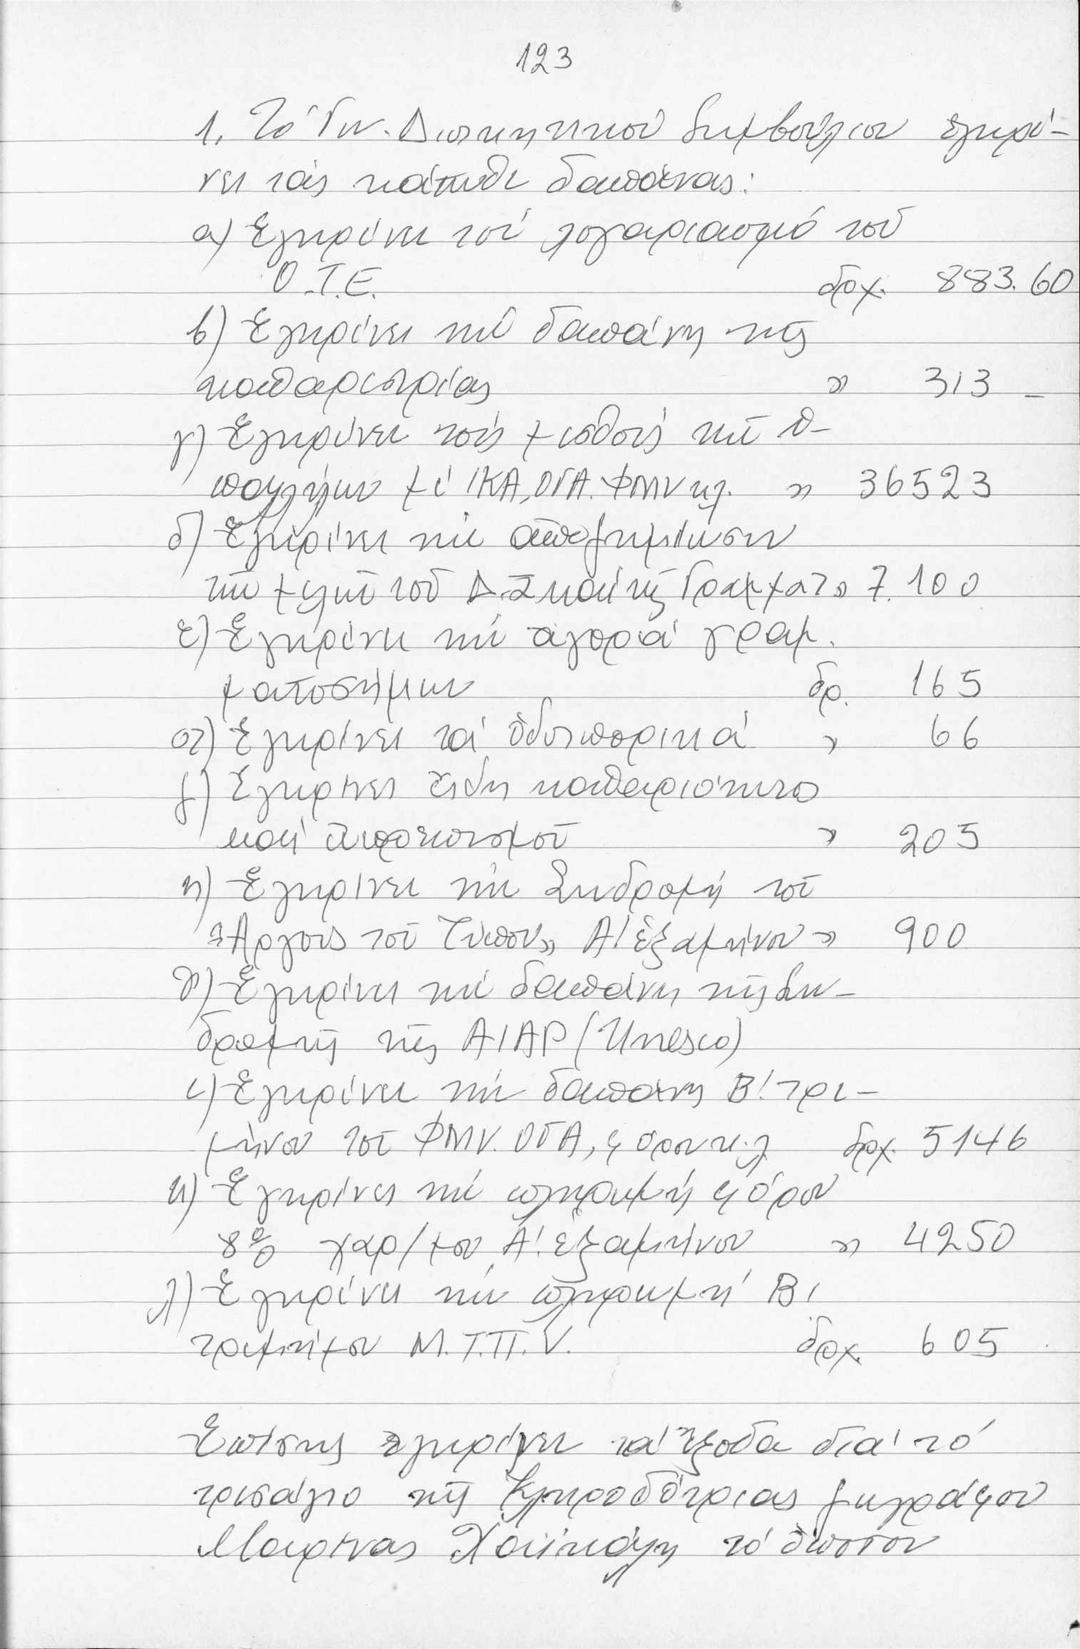 123
1. Τό Γεν. Διοικητικοῦ Συμβούλιον ἐγκρί-
νει τάς κάτωθι δαπάνας:
α) Ἐγκρίνει τόν λογαριασμό τοῦ
Ο.Τ.Ε. δρχ. 883.60
β) Ἐγκρίνει τήν δαπάνη τῆς
καθαριστρίας » 313 _
γ) Ἐγκρίνει τούς μισθούς τῶν ὑ-
παλλήλων μέ ΙΚΑ, ΟΓΑ. ΦΜΥ κλ. » 36523
δ) Ἐγκρίνει τήν ἀποζημίωσιν
τῶν μελῶν τοῦ Δ.Σ καί τῆς Γραμματ. » 7.100
ε) Ἐγκρίνει τήν ἀγορά γραμ.
ματοσήμων δρ. 165
στ) Ἐγκρίνει τά ὁδοιπορικά » 66
ζ) Ἐγκρίνει εἴδη καθαριότητο
καί εὐπρεπισμοῦ » 205
η) Ἐγκρίνει τήν Συνδρομή τοῦ
«Ἀργους τοῦ Τύπου» Α! ἑξαμήνου » 900
θ) Ἐγκρίνει τήν δαπάνη τῆς Συν-
δρομῆς τῆς ΑΙΑΡ (Unesco)
ι) Ἐγκρίνει τήν δαπάνη Β! τρι-
μήνου τοῦ ΦΜΥ. ΟΓΑ, φόρου κ.λ δρχ. 5146
κ) Ἐγκρίνει τήν πληρωμή φόρου
8% χαρ/μου Α! ἑξαμήνου » 4250
λ) Ἐγκρίνει τήν πληρωμή Β!
τριμήνου Μ.Τ.Π.Υ. δρχ. 605
Ἐπίσης ἐγκρίνει τά ἔξοδα διά τό
τρισάγιο τῆς Κληροδότριας ζωγράφου
Μαρίνας τό ὁποῖον